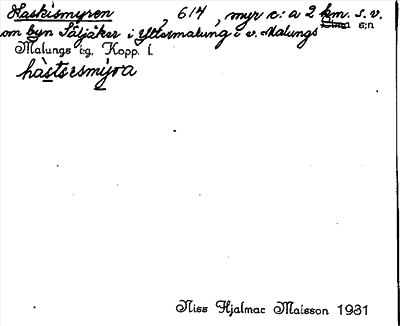 Haskismyren, 614, myr c:a 2 km. s.v.
om byn Säljåker i Yttermalung i v. Malungs
Malungs tg, Kopp. l.
hàstsesmýra
Niss Hjalmar Matsson 1931